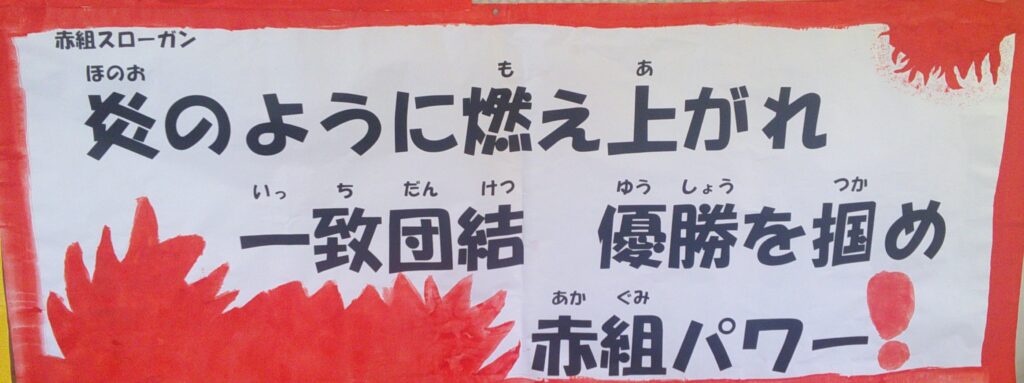 赤組スローガン
ほのお も あ
炎のように燃え上がれ
いっ ち だん けつ ゆう しょう つか
一致団結 優勝を掴め
あか ぐみ
赤組パワー!